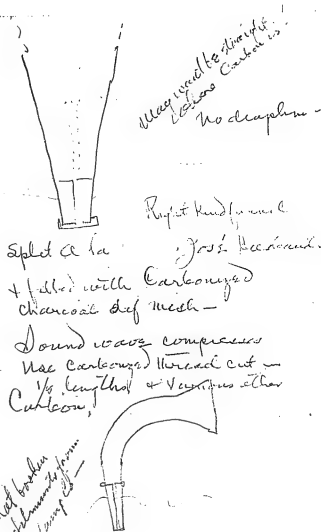 May be
where Carbon is
No diaphm —
Right Kind funnel
Split a la José
& filled with Carbonized
Charcoal dif mesh —
Sound wave compresses
Use Carbonized thread cut —
1/2 lengths & various other
Carbon,
broken
from
lamps —